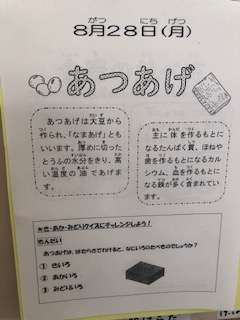 がつ にち げつ
8月28日(月)
あつあげ
あつあげは大豆から
作られ、「なまあげ」とも
いいます。厚めに切った
とうふの水分をきり、高
い温度の油であげま
す。
主に体を作るもとに
なるたんぱく質、ほねや
歯を作るもとになるカル
シウム、血を作るもとに
なる鉄が多く含まれてい
ます。
クイズにチャレンジしよう!
あつあげは、はたらきでわけると、なにいろのたべものでしょうか?
① きいろ
② あかいろ
③ みどりいろ